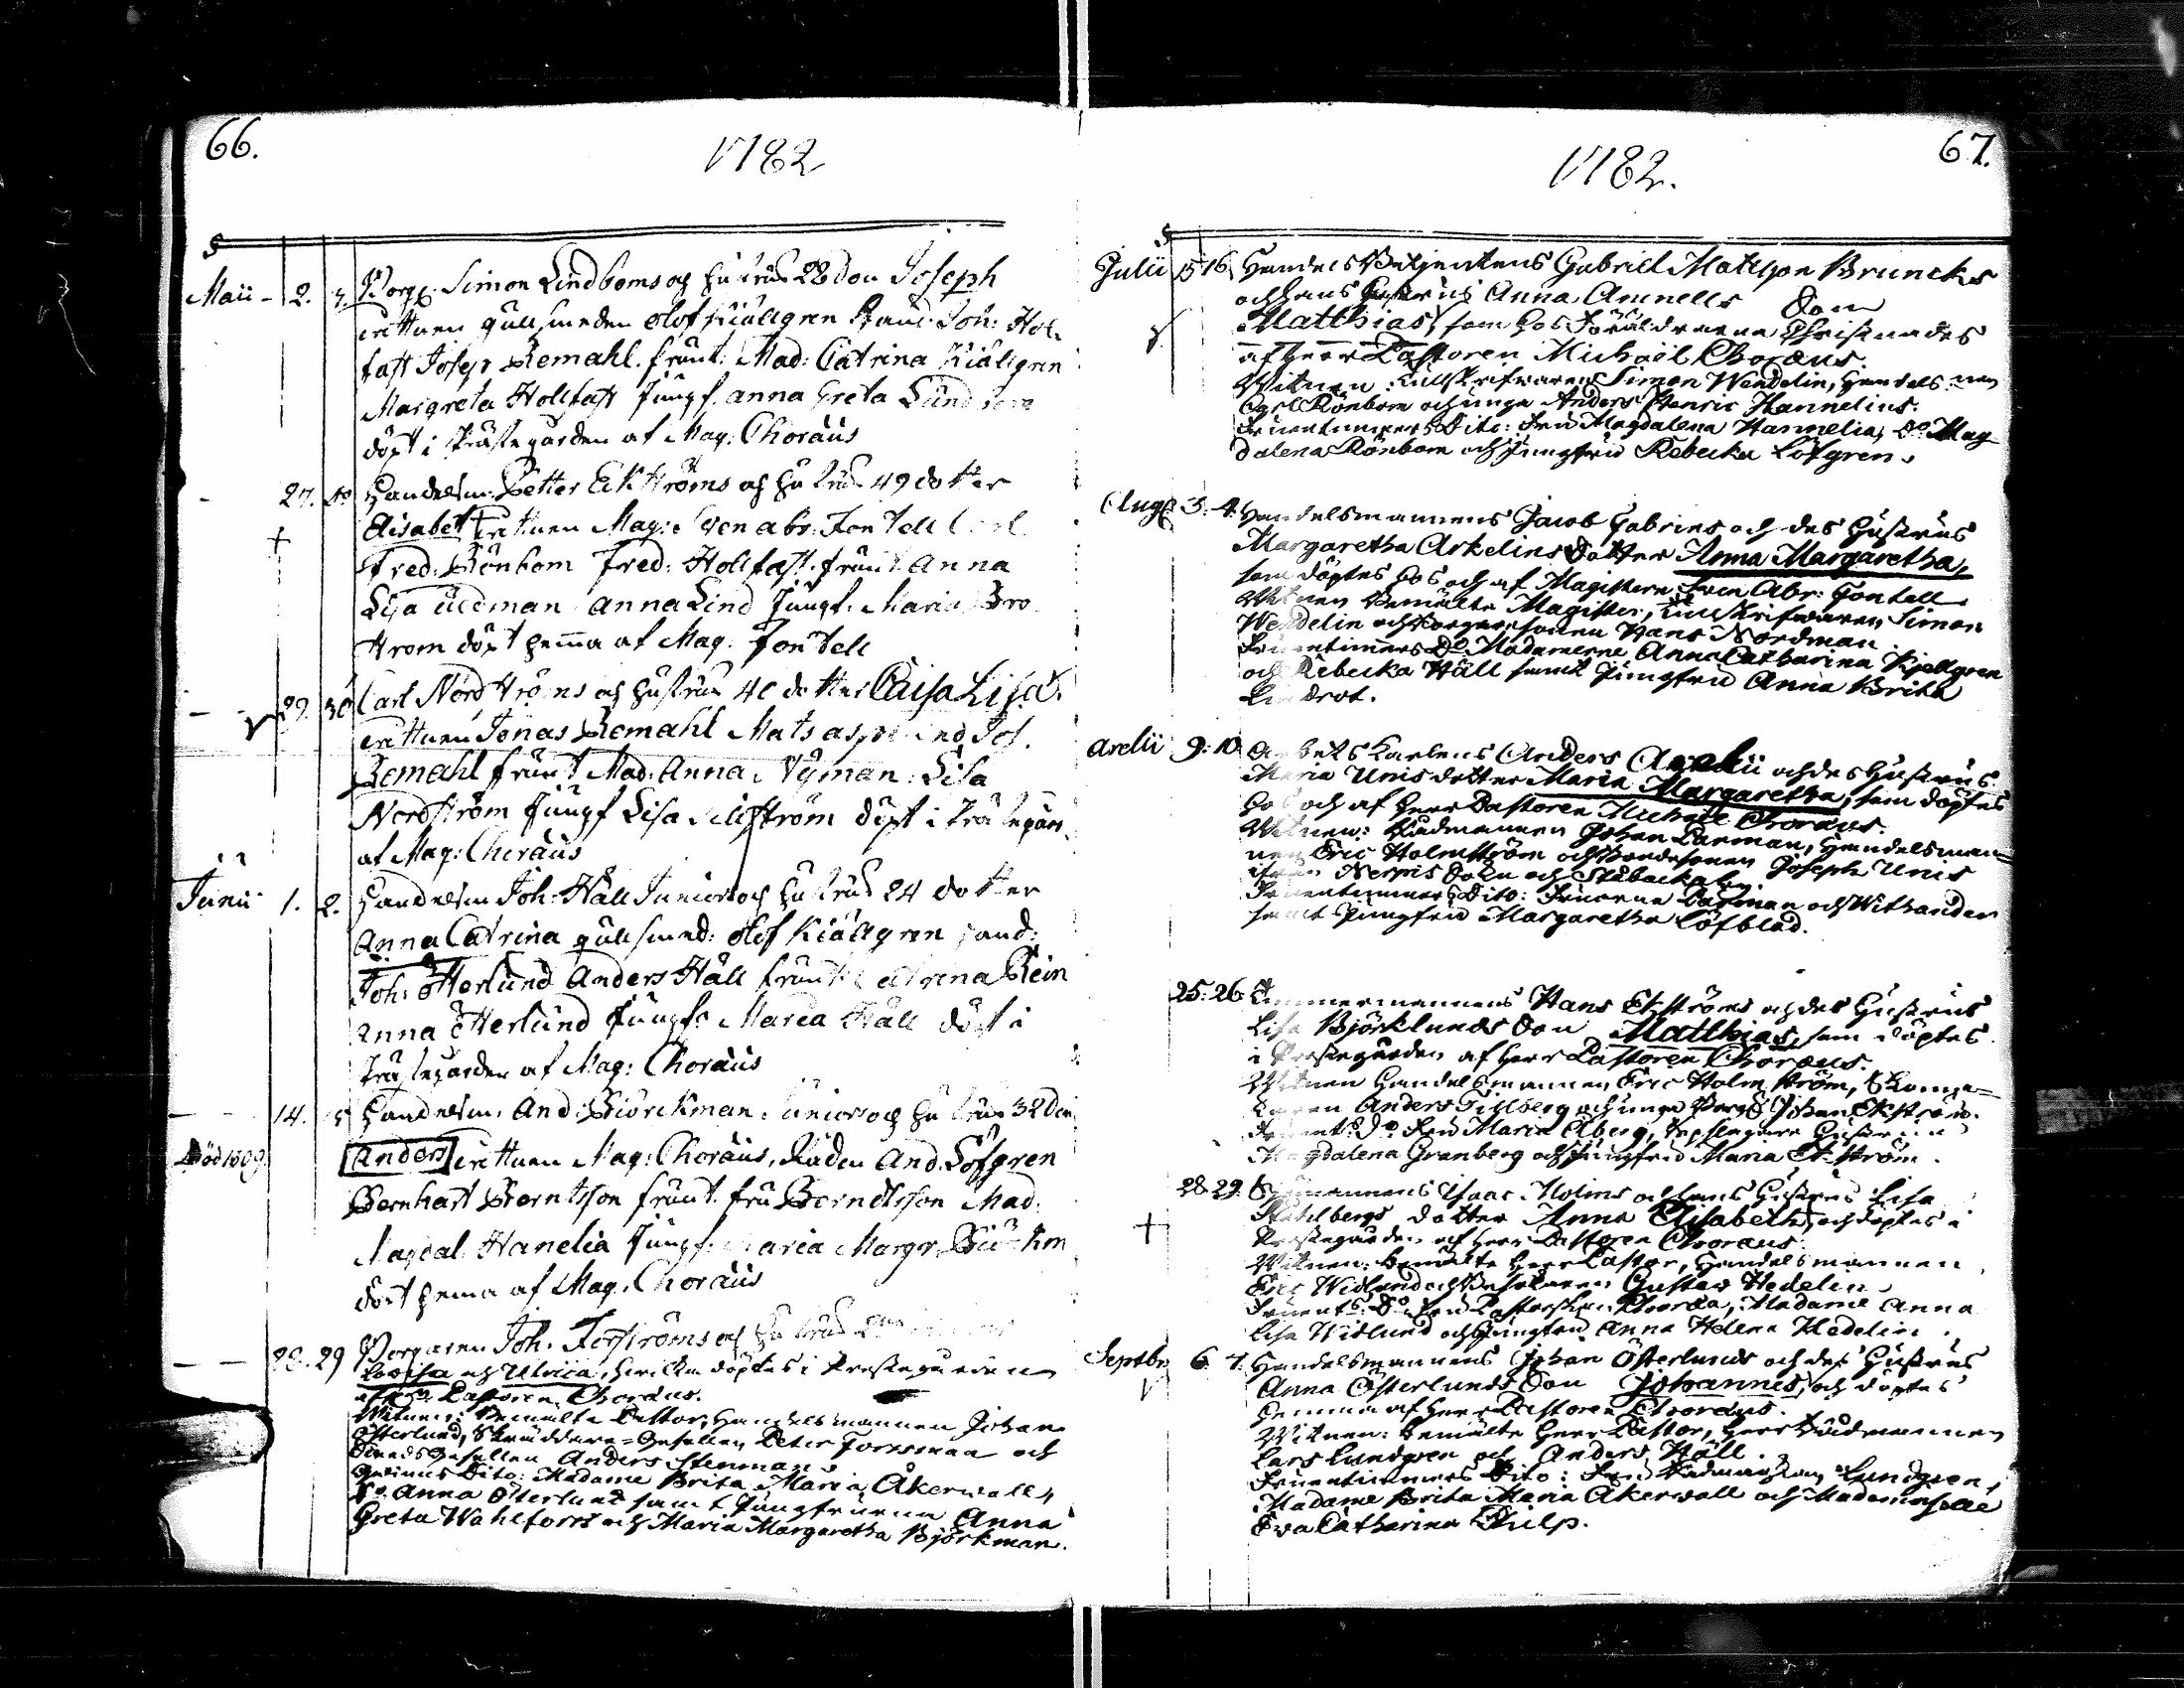 66.
1782
Maii - 2. 3. Borg: Simon Lindboms och hustrus 28 Son Joseph
wittnen gullsmeden Olof Kiällgren hand. Joh: Hol
fast Joseph Remahl. frunt: Mad: Catrina Kiällgren
Margreta Hollfast Jungf. Anna Greta Lund
döpt i Prästegården af Mag: Choräus
- 27. Handelsm: Petter Ekströms och hustrus 49 dotter
+ Elisabet wittnen Mag: Sven Abr: Fontell Carl
Fred: Rönbom Fred: Hollfast. frunt. Anna
Lisa Uddman Anna Lind Jungf. Maria Bro
ström döpt hema af Mag. Fontell
- - 29. 30 Carl Nordströms och hustrus 40 dotter Caisa Lisa.
wittnen Jonas Remahl Mats Jos.
Remahl frunt Mad: Anna Nyman Lisa
Nordström Jungf Lisa döpt i Prästegårn
af Mag: Choräus
Junii 1. 2. Handelsm Joh: Häll Juniors och hustrus 24 dotter
Anna Catrina gullsmed: Olof Kiällgren hand:
Joh: Österlund Anders Häll frunt: Catrina Rein
Anna Österlund Jungf: Maria Häll döpt i
Prästegården af Mag: Choräus
- - 14. Handelsm: And: Biörckman Juniors och hustrus 32 Son
Död 1809. Anders wittnen Mag: Choräus, Råden And. Löfgren
Bernhart Berntsson frunt. fru Berndtsson Mad.
Magdal. Hanelia Jungf. Maria Margr. Biörkm
döpt hema af Mag. Choräus
- - 28. 29 Borgaren Joh. Forströms och hustrus
Lovisa och Ulrica, hwilka döptes i Prästegården
af Pastoren Choräus.
Witnen: Bemälte Pastor, Handelsmannen Johan
Österlund, Skräddare-Gesällen Peter Forssman och
Gesällen Anders Stenman
Qwinns Dito: Madame Brita Maria Åkerwall,
Do Anna Österlund samt Jungfruerna Anna
Greta Wahlforss och Maria Margaretha Björkman.
67.
1782.
Julii 15 16 Handels Betjentens Gabriel Matsson Bruncks
och hans Hustrus Anna Amnells Son
Matthias, som hos Föräldrarna Christnades
af Herr Pastoren Michaël Choræus.
Witnen: Tullskrifwaren Simon Wendelin, Handelsman
Carl Rönbom och unga Anders Henric Hannelius.
Fruentimmers Dito: Fru Magdalena Hannelia, Do Mag
dalena Rönbom och Jungfru Rebecka Löfgren.
Aug: 3. 4. Handelsmannens Jacob Gabriels och des Hustrus
Margaretha Arkelins dotter Anna Margaretha,
som döptes hos och af Magistern Sven Abr: Fontell
Witnen Bemälte Magister, Tullskrifwaren Simon
Wendelin och Borgaresonen Hans Nordman.
Fruentimers Do Madamerne Anna Catharina Kjellgren
och Rebecka Häll samt Jungfru Anna Brita
Lindrot.
Arelii 9. 10. Arbets Karlens Anders Arelii och des Hustrus
Maria Unis dotter Maria Margaretha, som döptes
hos och af Herr Pastoren Michaël Choræus.
Witnen: Rådmannen Johan Lanman, Handelsman-
nen Eric Holmström och Bondesonen Joseph Unis
ifrån Nerpis Sokn och Stäbacka by
Fruentimmers Dito: Fruerna Lanman och Withander
samt Jungfru Margaretha Löfblad.
25. 26. Timmermannens Hans Ekströms och des Hustrus
Lisa Björklunds Son Matthias, som döptes
i Prestegården af Herr Pastoren Choræus.
Witnen Handelsmannen Eric Holmström, Skoma-
karen Anders Tillberg och unga Borg: Johan Ekström.
Fruent: Do Fru Maria Åberg, Hustrun
Magdalena Granberg och Jungfru Maria Ekström.
28. 29. Sjömannens Isaac Holms och hans Hustrus Lisa
+ Stahlbergs dotter Anna Elisabeth, och döptes i
Prestegården af Herr Pastoren Choræus.
Witnen: Bemälte Herr Pastor, Handelsmannen
Eric Widlund och Besökaren Gustav Hedelin
Fruent: Do Fru Pastorskan Choræa, Madame Anna
Lisa Widlund och Jungfru Anna Helena Hedelin.
Septbr 6. 7. Handelsmannens Johan Österlunds och des Hustrus
Anna Österlunds Son Johannes, och döptes
hemma af Herr Pastoren Choræus.
Witnen: Bemälte Herr Pastor, Herr Rådmannen
Lars Lundgren och Anders Häll.
Fruentimmers Dito: Fru Rådmanskan Lundgren,
Madame Brita Maria Åkerwall och Mademoiselle
Eva Catharina Thulp.